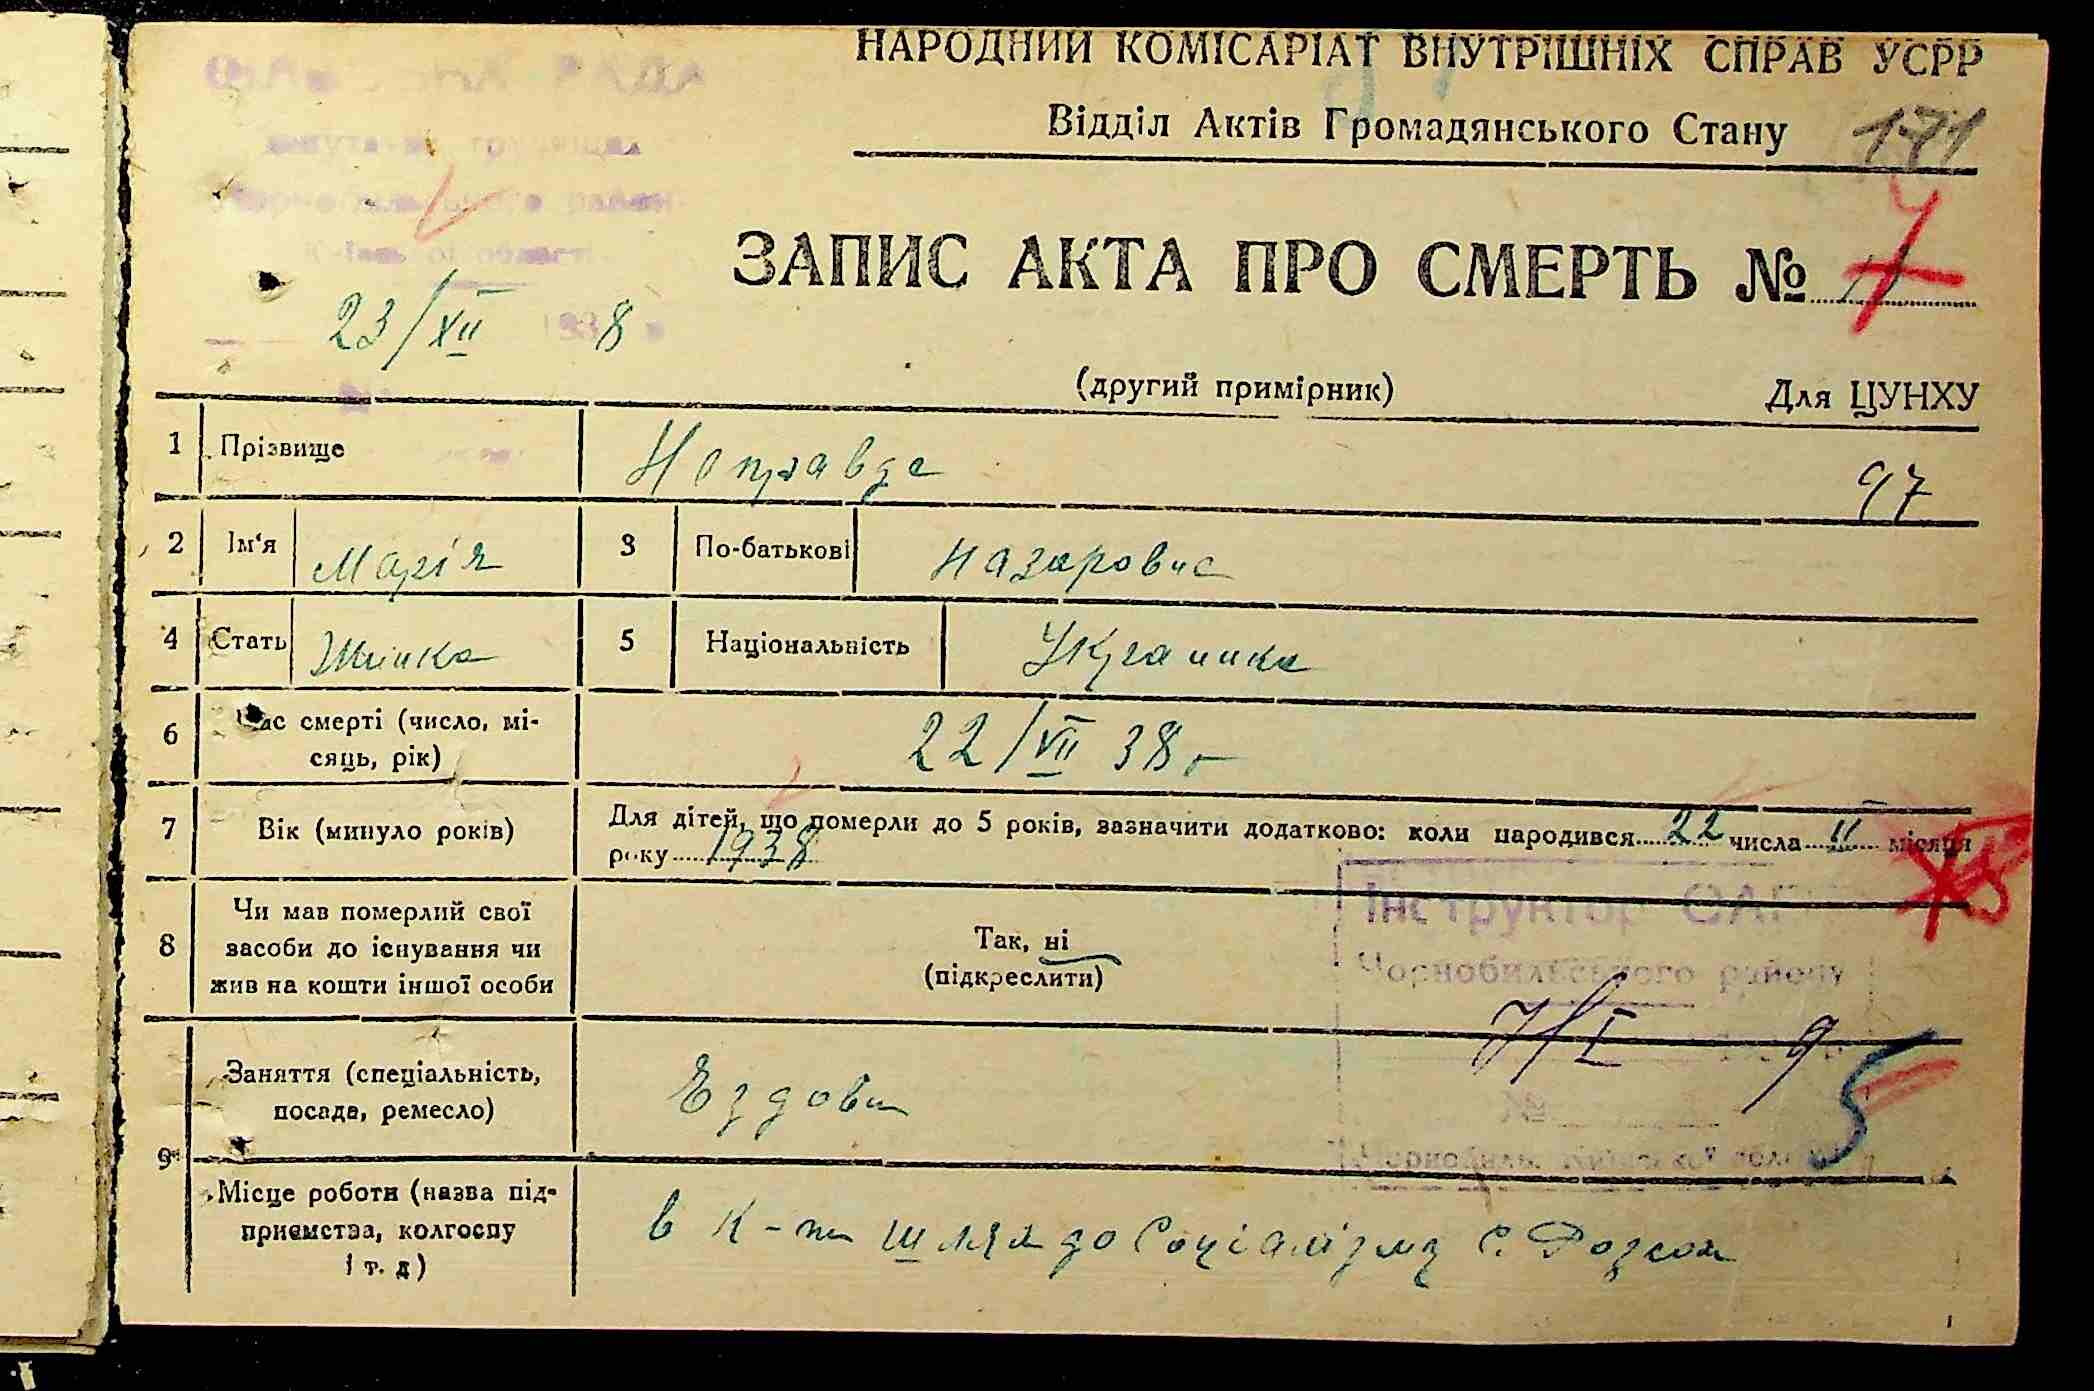 НАРОДНИЙ КОМІСАРІАТ ВНУТРІШНІХ СПРАВ УСРР
Відділ Актів Громадянського Стану 171
РАДА
Чорнобильського району
Київської області
ЗАПИС АКТА ПРО СМЕРТЬ №
23/XII 1938 р
(другий примірник) Для ЦУНХУ
1 Прізвище Неправда
97
2 Ім'я Марія 3 По-батькові Назаровна
4 Стать Жінка 5 Національність Украинка
6 Час смерті (число, мі-
сяць, рік) 22/VII 38 г
7 Вік (минуло років) Для дітей, що померли до 5 років, зазначити додатково: коли народився 22 числа II місяця
року 1938
8 Чи мав померлий свої
засоби до існування чи
жив на кошти іншої особи
Так, ні
(підкреслити)
Інструктор ОАГС
Чорнобильського району
7/I 9
№
5
9 Заняття (спеціальність,
посада, ремесло) Ездовий
Місце роботи (назва під-
приємства, колгоспу
і т. д) в к-пі шлях до Соціалізму с.